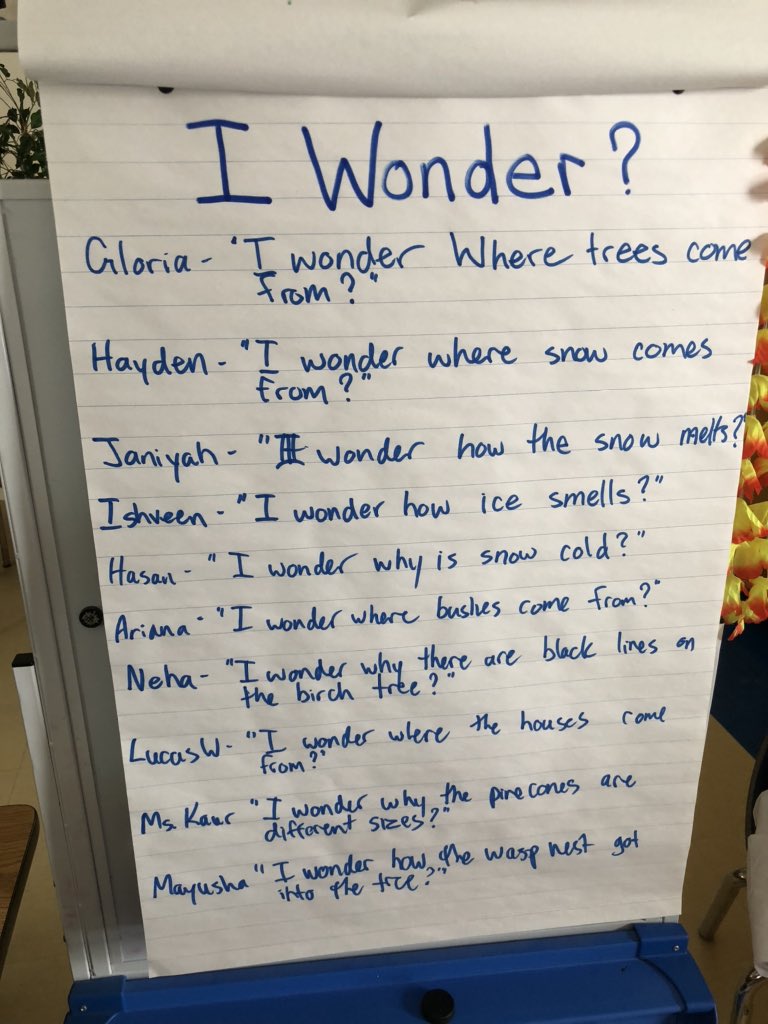 I Wonder?
Gloria - "I wonder Where trees come
from?"
Hayden - "I wonder where snow comes
from?"
Janiyah - "I wonder how the snow melts?"
Ishveen - "I wonder how ice smells?"
Hasan - "I wonder why is snow cold?"
Ariana - "I wonder where bushes come from?"
Neha - "I wonder why there are black lines on
the birch tree?"
Lucas W - "I wonder where the houses come
from?"
Ms. Kaur "I wonder why the pinecones are
different sizes?"
Mayusha "I wonder how the wasp nest got
into the tree?"